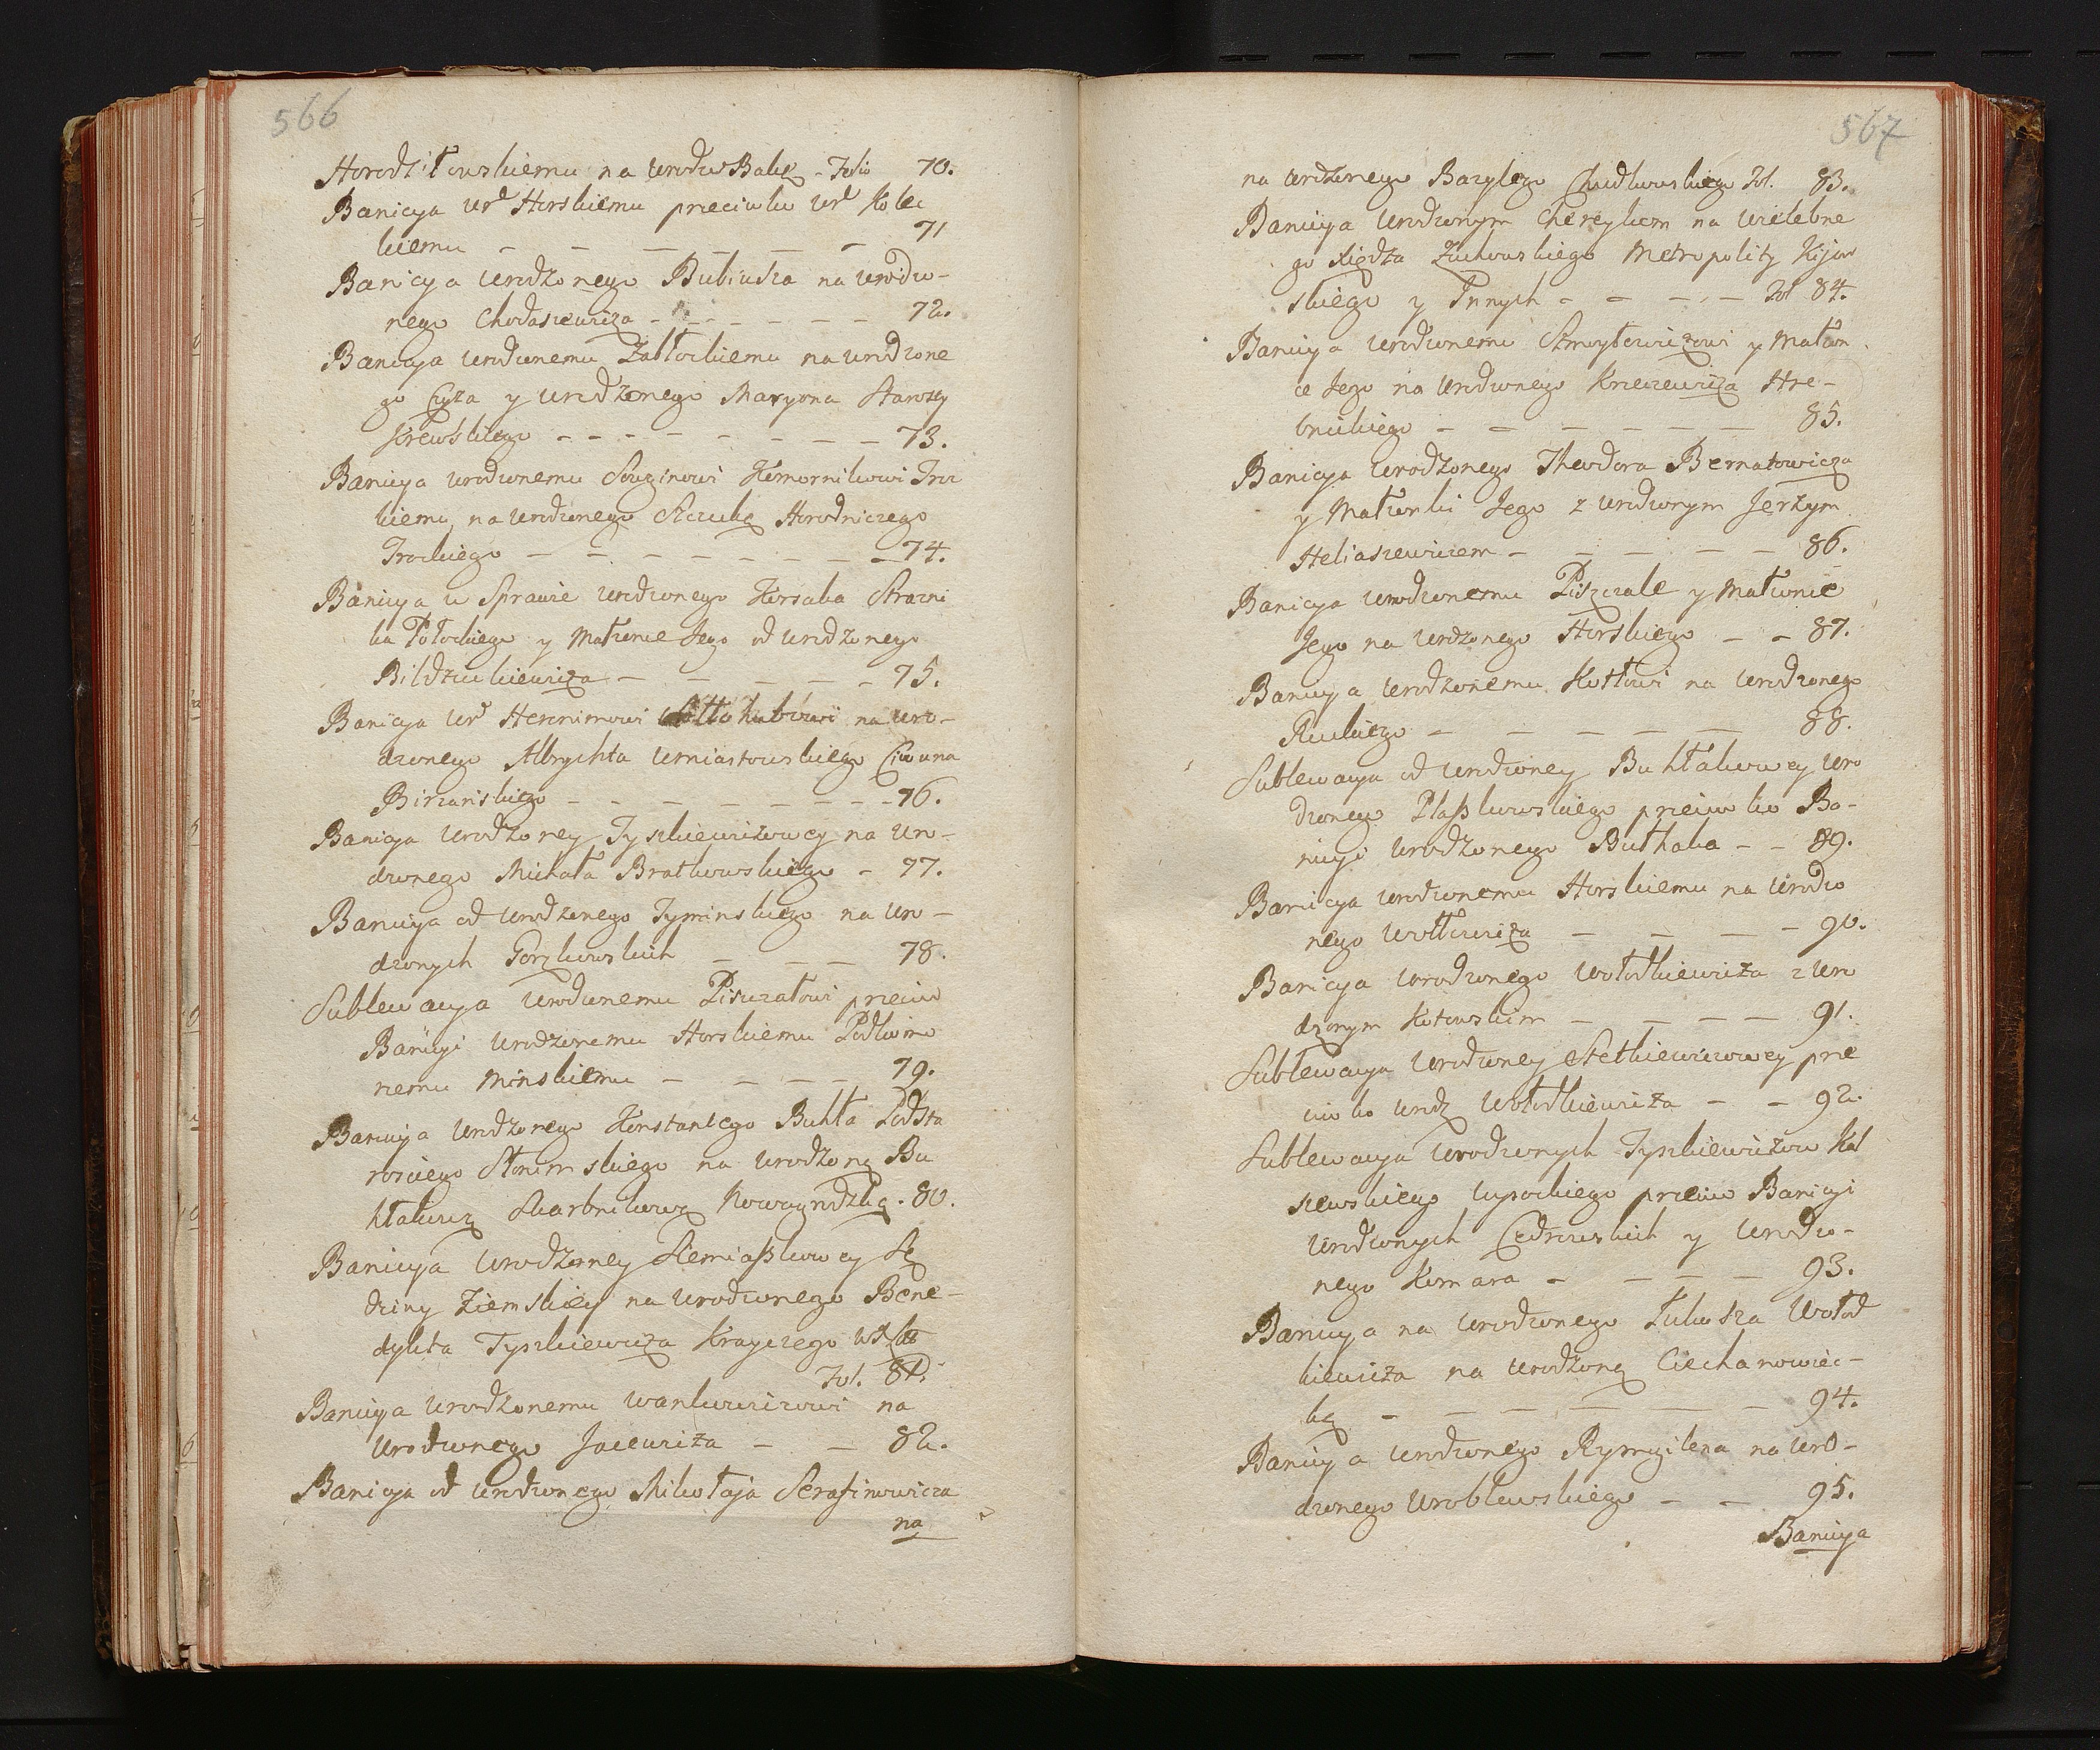 566
Horodziłowskiemu na urodz Bakę - Folio 70.
Banicya Ur. Horskiemu przeciwko Ur. Kolec
kiemu - - - - - 71
Banicya Urodzonego Bubiusza na Urodzo-
nego Chodasiewicza - - - - - - 72.
Banicya Urodzonemu Zabłockiemu na Urodzone
go Czyża y Urodzonego Maryona
- - - - - - - - - 73.
Banicya Urodzonemu Souginowi Komornikowi Troc
kiemu, na Urodzonego Szczukę Horodniczego
Trockiego - - - - - - - - 74.
Banicya w Sprawie Urodzonego Korsaka Strazni
ka Połockiego y Małzonce Jego od Urodzonego
Bildziukiewicza - - - - - 75.
Banicya Ur. Heronimowi na Uro-
dzonego Albrychta Umiastowskiego Ciwuna
Birzanskiego - - - - - - - - 76.
Banicya Urodzoney Tyszkiewiczowey na Uro-
dzonego Michała Bratkowskiego - 77.
Banicya od Urodzonego Tyminskiego na Uro-
dzonych Gorzkowskich - - - 78.
Sublewacya Urodzonemu Piszczałowi przeciw
Banicyi Urodzonemu Horskiemu Podkomo
rzemu Minskiemu - - - - 79.
Banicya Urodzonego Konstantego Bukła Podsta
rosciego Słonimskiego na Urodzoną Bu
kłakową Skarbnikową Nowogrodzką. 80.
Banicya Urodzoney Siemiaszkowey Sę
dziny Ziemskiey na Urodzonego Bene-
dykta Tyszkiewicza Krayczego WXLitt
Fol. 81.
Banicya Urodzonemu Wankowiczowi na
Urodzonego Jacewicza - - 82.
Banicya od Urodzonego Mikołaja Serafinowicza
na
567
na Urdzonego Bazylego Chudkowskiego Fol. 83.
Banicya Urodzonym Chereykom na Wielebne
go Xiędza Zuchowskiego Metropolity Kijow
skiego y Innych - - - - Fol 84.
Banicya Urodzonemu y Małzon
ce Jego na Urodzonego Kniaziewicza Hre-
bnickiego - - - - - - 85.
Banicya Urodzonego Theodora Bernatowicza
y Małzonki Jego z Urodzonym Jerzym
Heliaszewiczem - - - - - 86.
Banicya Urodzonemu Piszczale y Małzonce
Jego na Urdzonego Horskiego - - 87.
Banicya Urodzonemu Kottowi na Urodzonego
Ruckiego - - - - - 88.
Sublewacya od Urodzoney Bukłakowey Uro
dzonego Plaszkowskiego przeciwko Ba-
nicyi Urodzonego Bułhaka - - 89.
Banicya Urodzonemu Horskiemu na Urodzo
nego Wołłowicza - - - - 90.
Banicya Urodzonego Wołodkiewicza z Uro
dzonym Kotowskim - - - - 91.
Sublewacya Urodzoney Stetkiewiczowey prze
ciwko Urdz Wołodkiewicza - - 92.
Sublewacya Urodzonych Tyszkiewiczow Kal
szewskiego Łuposkiego przeciw Banicyi
Urodzonych Cedrowskich y Urodzo-
nego Komara - - - - 93.
Banicya na Urodzonego Łukasza Wołod
kiewicza na Urodzoną Ciechanowiec-
ką - - - - - - 94.
Banicya Urodzonego Rymgilena na Uro-
dzonego Wroblewskiego - - 95.
Banicya